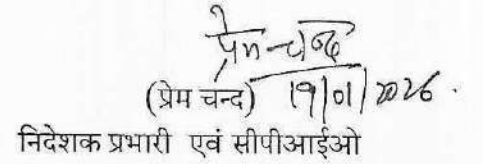 प्रेम चन्द
(प्रेम चन्द) 19/01/2026.
निदेशक प्रभारी एवं सीपीआईओ